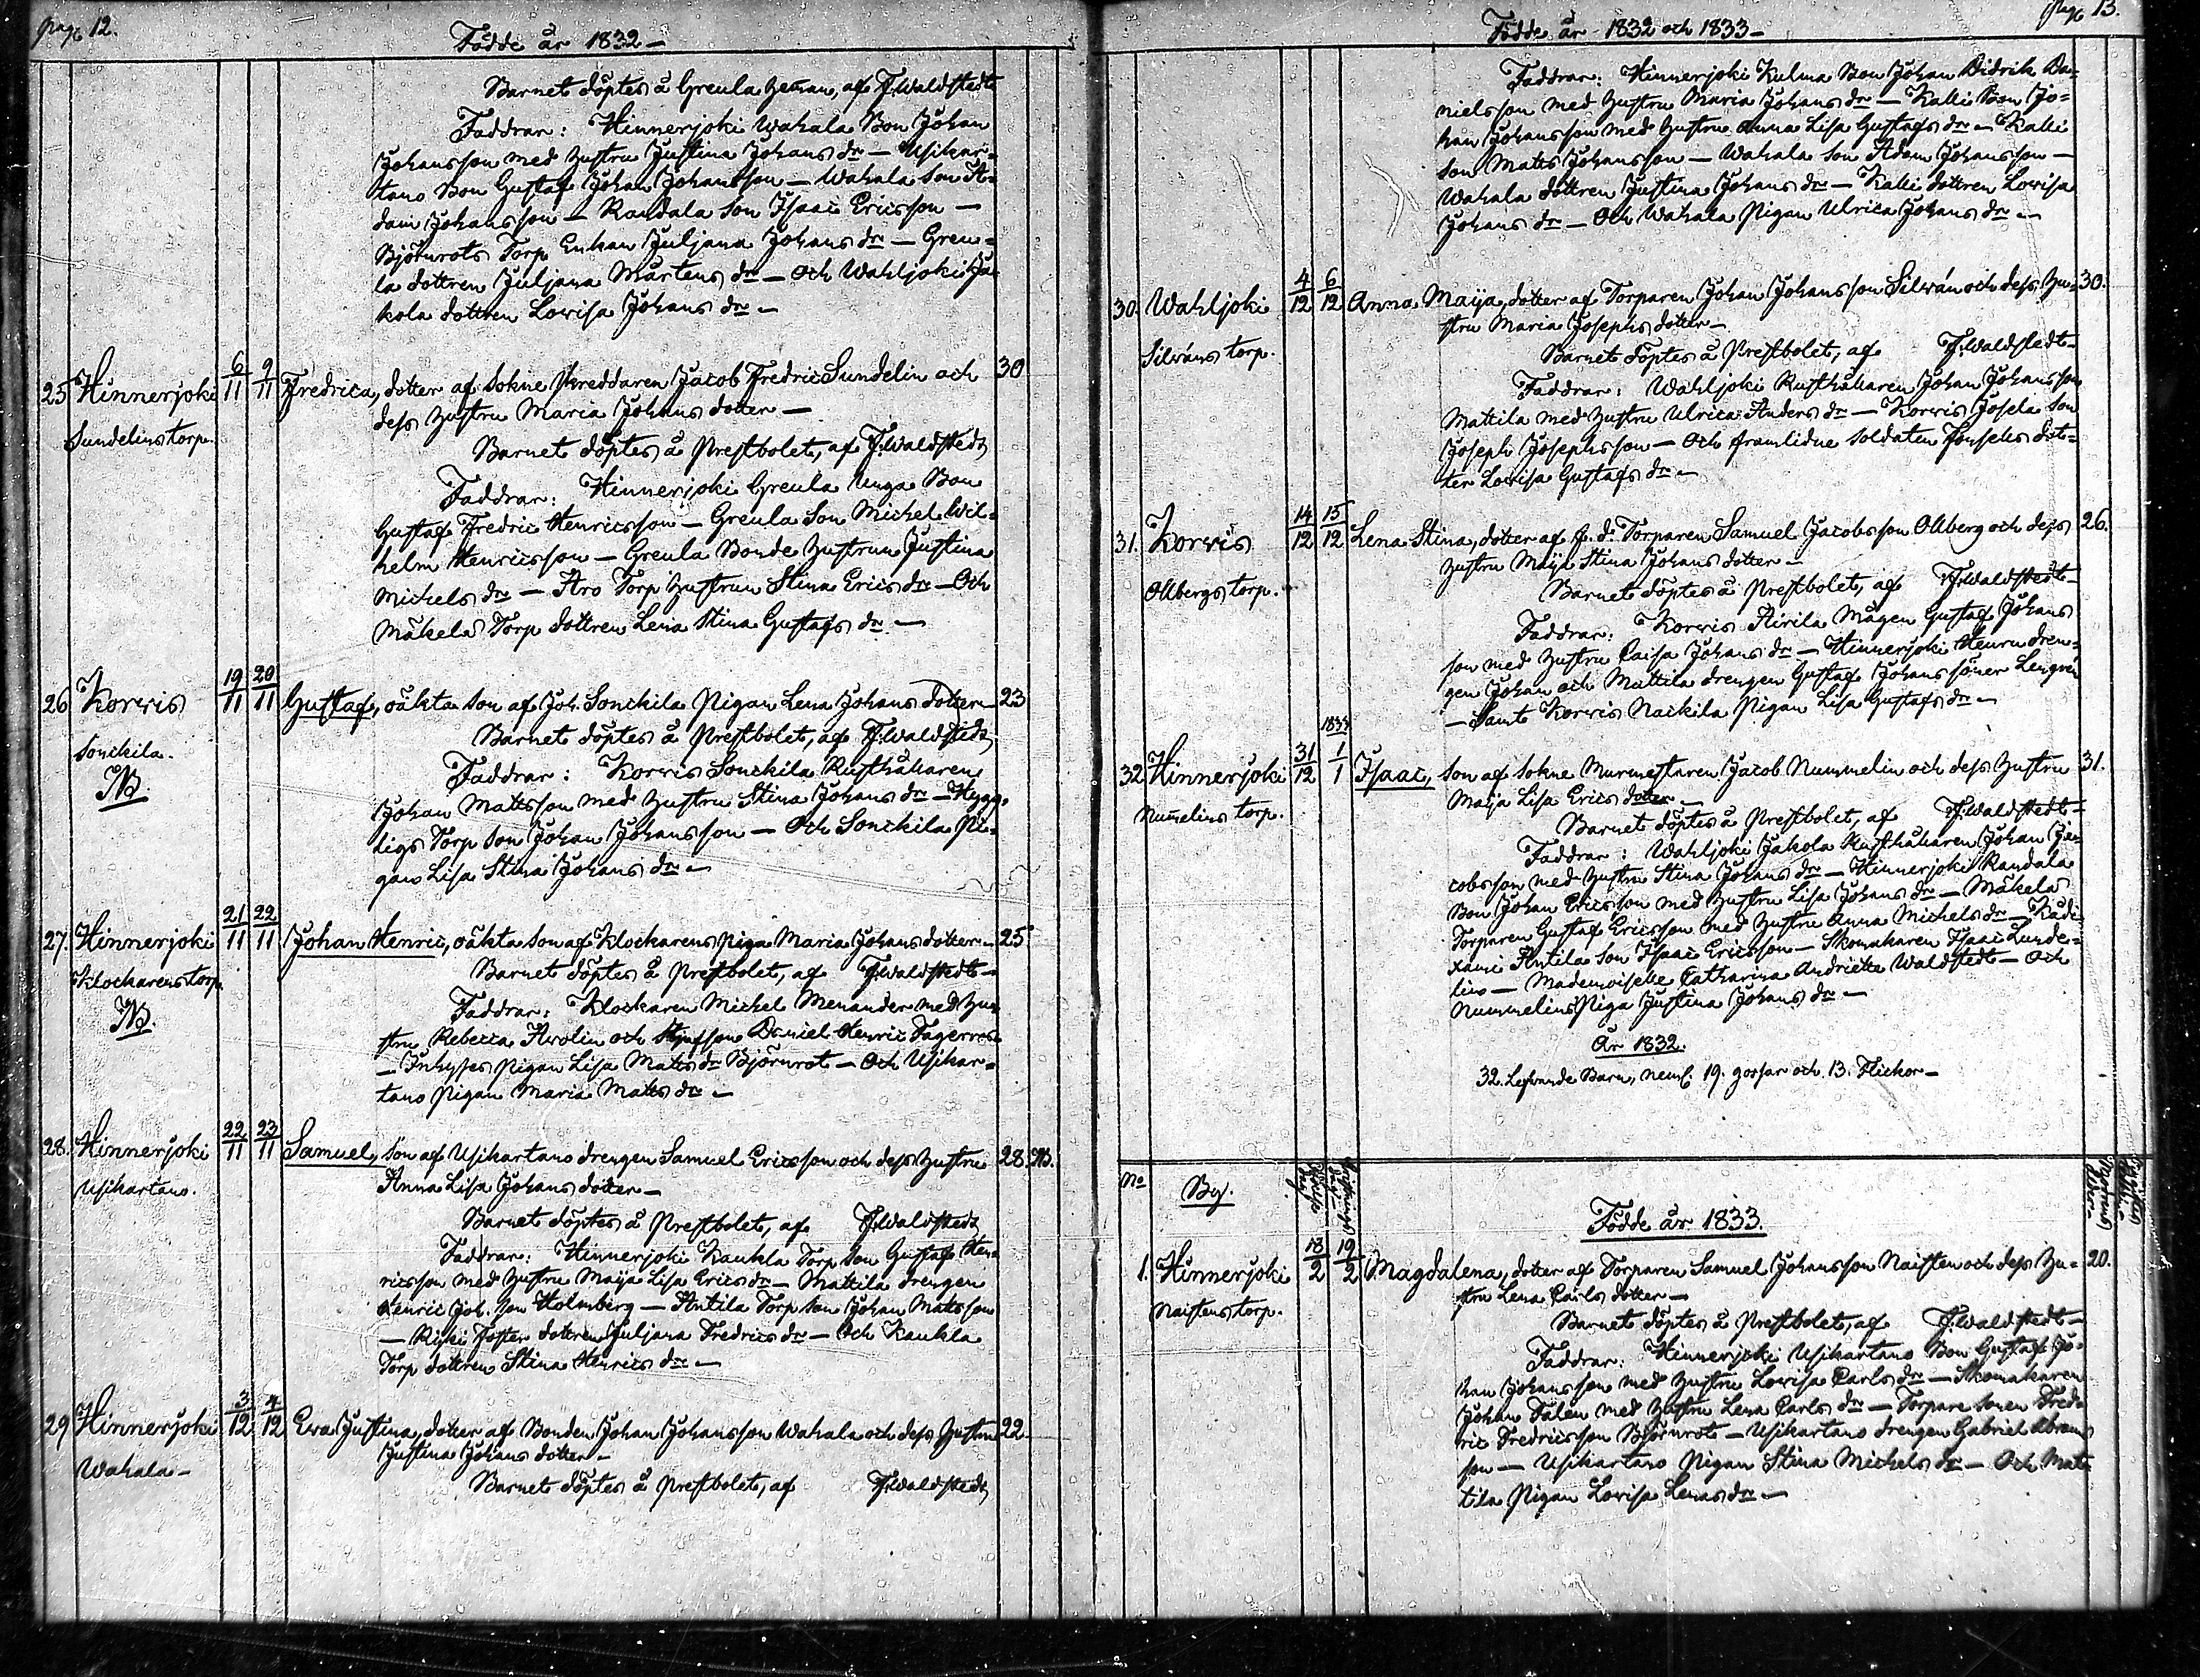 pag 12.
Födde år 1832 —
Barnet döptes å Greula hemän, af F. Waldstedt
Faddrar: Hinnerjoki Wahala Bon Johan
Johansson med hustru Justina Johans dr — Usikar-
tano Bon Gustaf Johan Johansson — Wahala Son A-
dam Johansson — Raudala Son Isaac Ericsson —
Björnrots Torp Enkan Juljana Johans dr — Greu-
la dottren Juljana Mårtens dr — Och Wahljoki Ja-
kola dottren Lovisa Johans dr —
25 Hinnerjoki 6/11 9/11 Fredrica, dotter af Sokne Skreddaren Jacob Fredric Sundelin och 30
Sundelins torp. dess hustru Maria Johans dotter —
Barnet döptes å Prestbolet, af F. Waldstedt
Faddrar: Hinnerjoki Greula unga Bon
Gustaf Fredric Henricsson — Greula Son Michel Wil-
helm Henricsson — Greula Bonde hustrun Justina
Michels dr — Aro Torp hustrun Stina Erics dr — Och
Mäkelä Torp dottren Lena Stina Gustafs dr —
26 Korvis 19/11 20/11 Gustaf, oäkta son af Joh. Sonckila Pigan Lena Johans dotter — 23
Sonckila. Barnet döptes å Prestbolet, af F. Waldstedt
NB. Faddrar: Korvis Sonckila Rusthållaren
Johan Matsson med hustru Stina Johans dr — Hygg-
ligs Torp Son Johan Johansson — Och Sonckila Pi-
gan Lisa Stina Johans dr —
27. Hinnerjoki 21/11 22/11 Johan Henric, oäkta son af Klockarens piga Maria Johans dotter — 25
Klockarens torp. Barnet döptes å Prestbolet, af F. Waldstedt —
NB. Faddrar: Klockaren Michel Menander med hu-
stru Rebecca Avolin och Styfson Daniel Henric Fagerroos
— Inhyses Pigan Lisa Matts dr Björnrot — Och Usikar-
tano Pigan Maria Matts dr —
28. Hinnerjoki 22/11 23/11 Samuel, Son af Usikartano drengen Samuel Ericsson och dess hustru 28. NB.
Usikartano. Anna Lisa Johans dotter —
Barnet döptes å Prestbolet, af F. Waldstedt
Faddrar: Hinnerjoki Kaukla Torp Son Gustaf Hen-
ricsson med hustru Maija Lisa Erics dr — Mattila drengen
Henric Joh. Son Holmberg — Antila Torp Son Johan Matsson
— Rijki Foster dottren Juljana Fredrics dr — Och Kaukla
Torp dottren Stina Henrics dr —
29 Hinnerjoki 3/12 4/12 Eva Justina, dotter af Bonden Johan Johansson Wahala och dess hustru 22
Wahala — Justina Johans dotter —
Barnet döptes å Prestbolet, af F. Waldstedt
pag 13.
Födde år 1832 och 1833 —
Faddrar: Hinnerjoki Kulma Bon Johan Didrik Da-
nielsson med hustru Maria Johans dr — Kalli Bon Jo-
han Johansson med hustru Anna Lisa Gustafs dr — Kalli
Son Matts Johansson — Wahala Son Adam Johansson —
Wahala dottren Justina Johans dr — Kalli dottren Lovisa
Johans dr — Och Wahala Pigan Ulrica Johans dr —
30. Wahljoki 4/12 6/12 Anna Maija, dotter af Torparen Johan Johansson Silwán och dess hu- 30.
Silwáns torp. stru Maria Josephs dotter —
Barnet döptes å Prestbolet, af F. Waldstedt —
Faddrar: Wahljoki Rusthållaren Johan Johansson
Mattila med hustru Ulrica Anders dr — Korvis Josela Son
Joseph Josephsson — Och framlidne Soldaten Jonseks dot-
ter Lovisa Gustafs dr —
31. Korvis 14/12 15/12 Lena Stina, dotter af f. d. Torparen Samuel Jacobsson Ollberg och dess 26.
Ollbergs torp. hustru Maija Stina Johans dotter —
Barnet döptes å Prestbolet, af F. Waldstedt —
Faddrar: Korvis Airila Mågen Gustaf Johans
son med hustru Caisa Johans dr — Hinnerjoki Henru dren-
gen Johan och Mattila drengen Gustaf Johans söner Lengrén
— Samt Korvis Naickila Pigan Lisa Gustafs dr —
1833
32 Hinnerjoki 31/12 1/1 Isaac, Son af Sokne Murmestaren Jacob Nummelin och dess hustru 31.
Numelins torp. Maija Lisa Erics dotter —
Barnet döptes å Prestbolet, af F. Waldstedt —
Faddrar: Wahljoki Jakola Rusthållaren Johan Ja-
cobsson med hustru Stina Johans dr — Hinnerjoki Raudala
Bon Johan Ericsson med hustru Lisa Johans dr — Mäkelä
Torparen Gustaf Ericsson med hustru Anna Michels dr — Kadi-
xami Antila Son Isaac Ericsson — Skomakaren Isaac Lunde-
lin — Mademoiselle Catharina Andrietta Waldstedt — Och
Nummelins Piga Justina Johans dr —
År 1832.
32. Lefvande Barn, neml. 19. gossar och 13. Flickor —
No By.
Födde år 1833.
1. Hinnerjoki 18/2 19/2 Magdalena, dotter af Torparen Samuel Johansson Naisten och dess hu- 20.
Naistens torp. stru Lena Carls dotter —
Barnet döptes å Prestbolet, af F. Waldstedt —
Faddrar: Hinnerjoki Usikartano Bon Gustaf Jo-
han Johansson med hustru Lovisa Carls dr — Skomakaren
Johan Falen med hustru Lena Carls dr — Torpare sonen Fred-
ric Fredricsson Björnrot — Usikartano drengen Gabriel Abrams
son — Usikartano Pigan Stina Michels dr — Och Mat-
tila Pigan Lovisa Lenas dr —